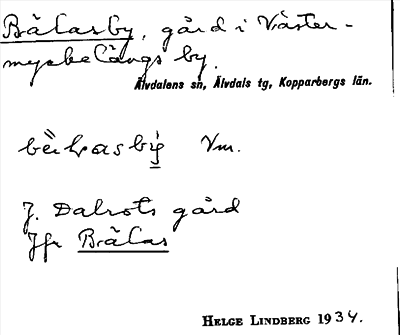 Bälasby, gård i Väster-
myckelängs by.
Älvdalens sn, Älvdals tg, Kopparbergs län.
Vm.
J. Dalrots gård
Jfr Bälas
HELGE LINDBERG 1934.